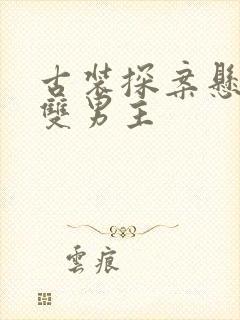 古裝探案懸
雙男主
雲痕